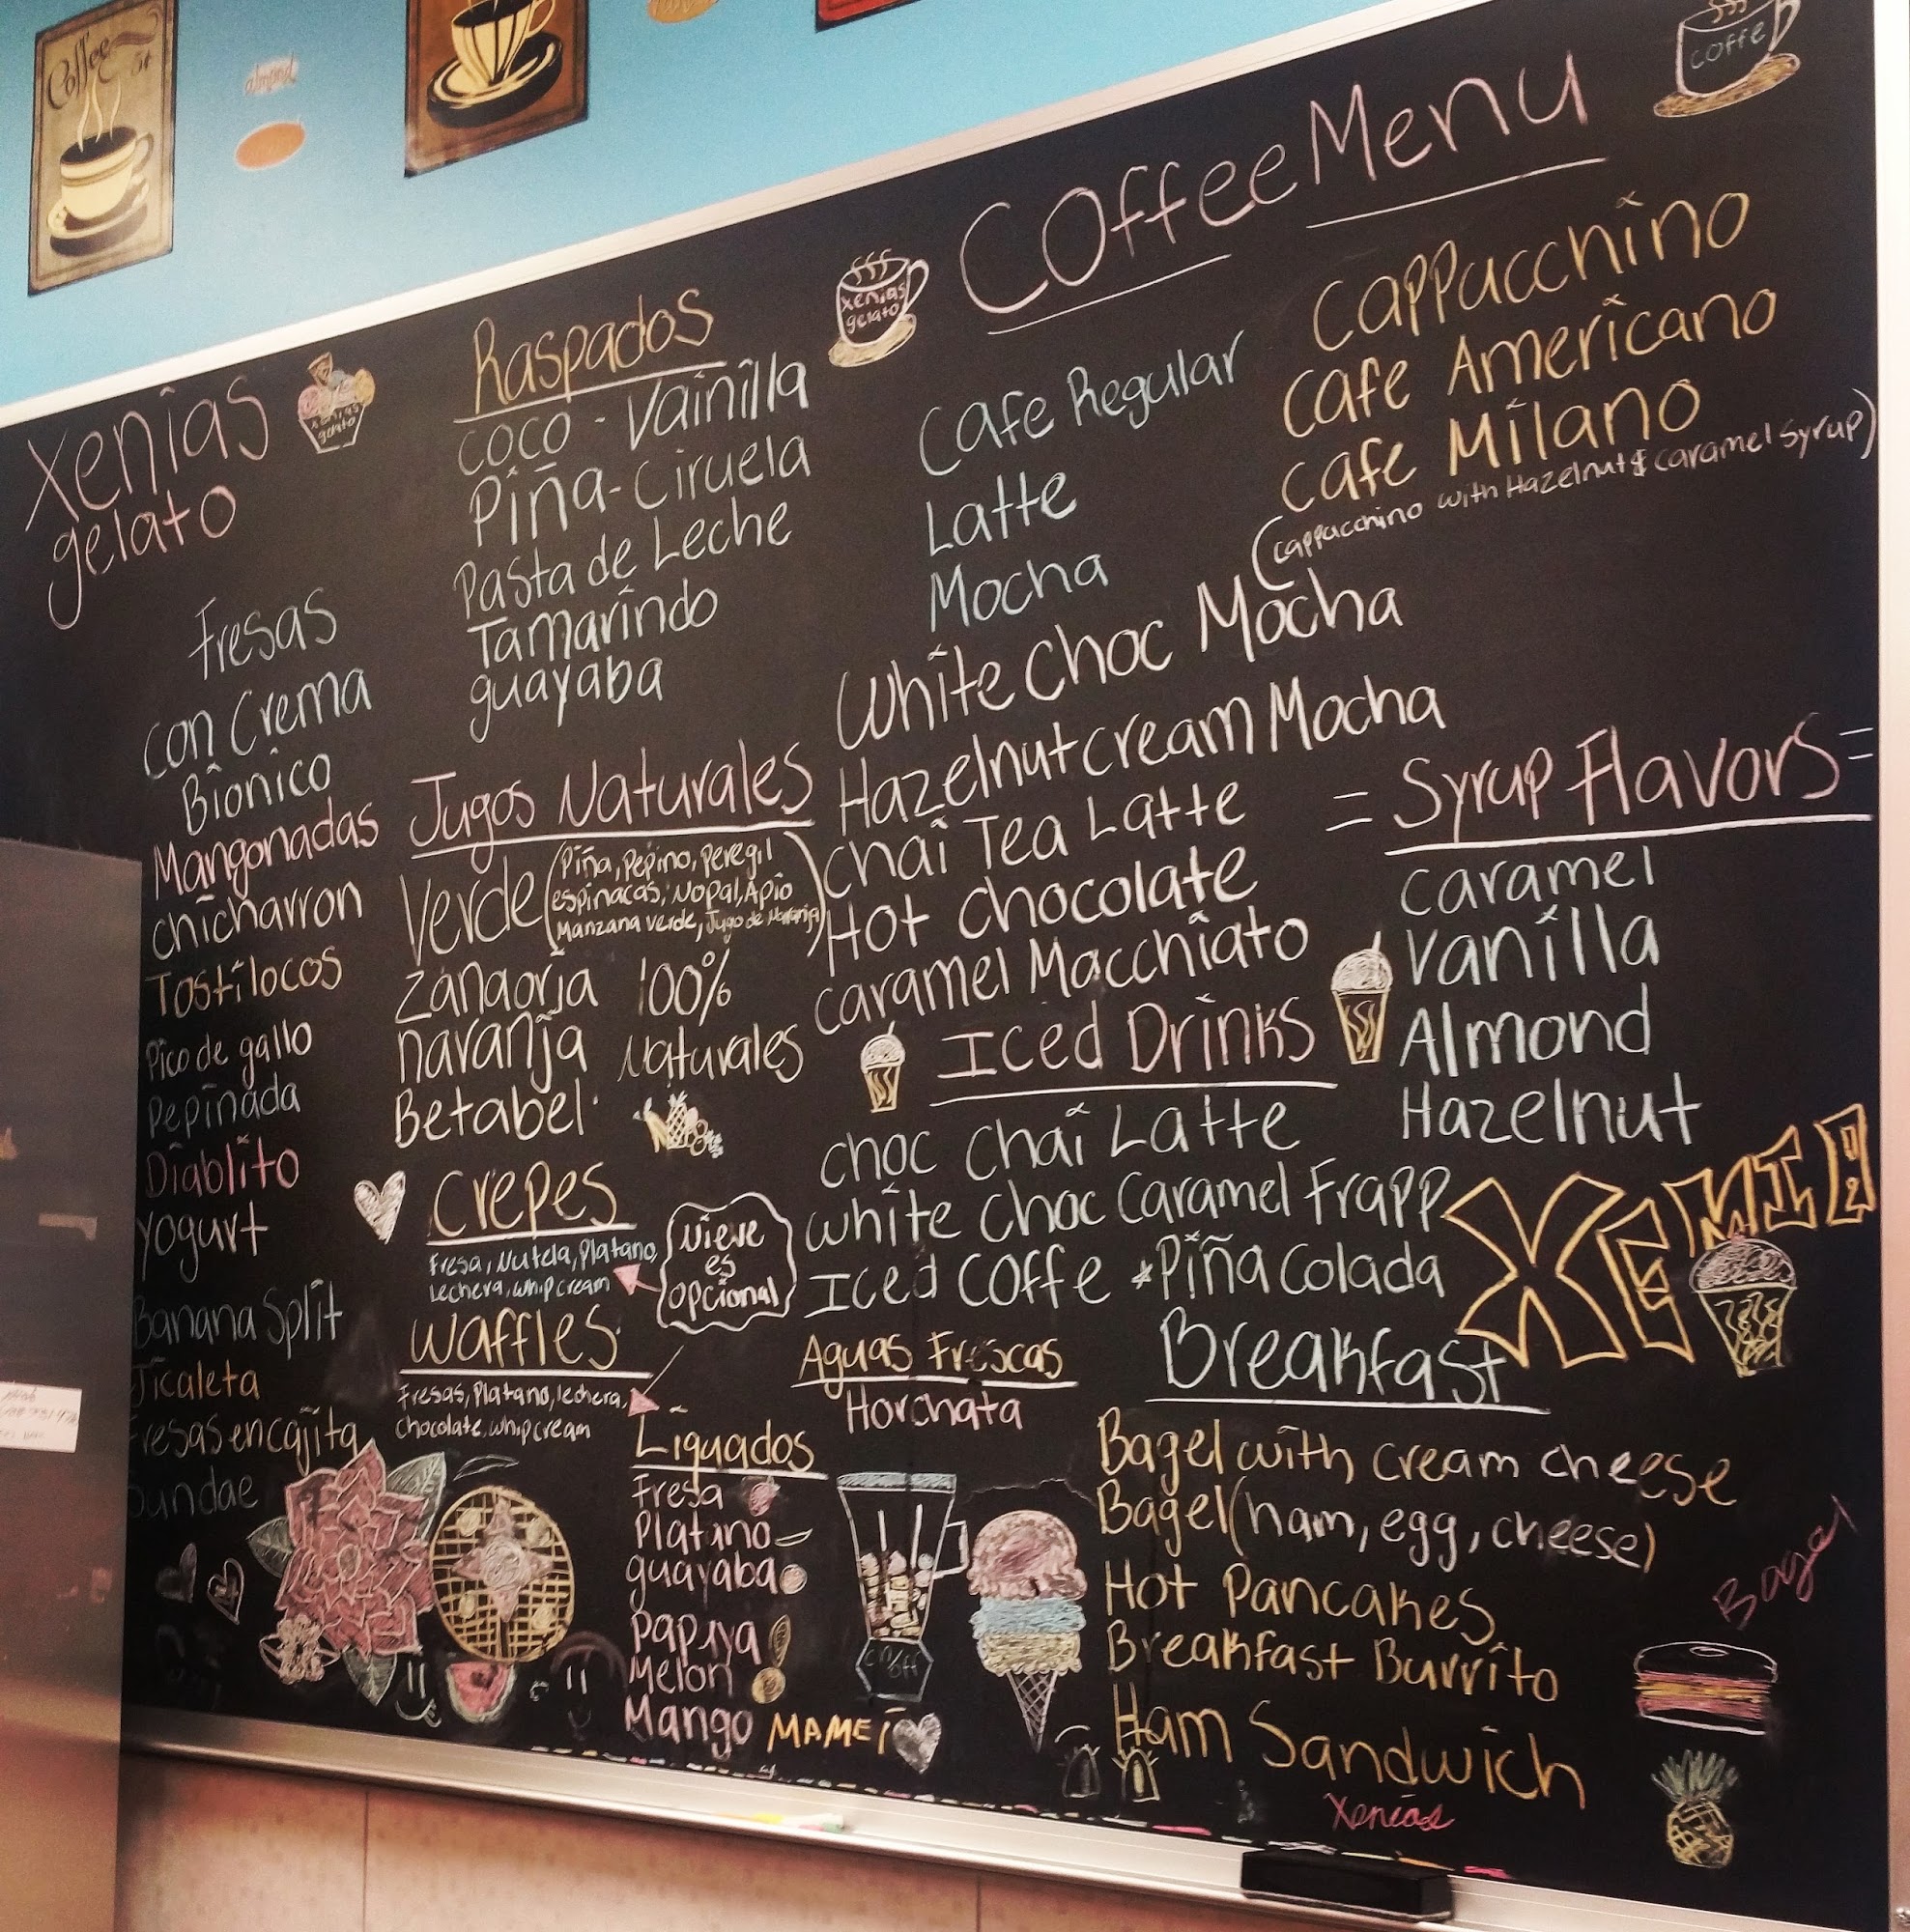 Coffee
5¢
almond
Xenias
gelato
Fresas
con Crema
Bionico
Mangonadas
chicharron
Tostilocos
Pico de gallo
Pepinada
Diablito
Yogurt
Banana Split
Jicaleta
Fresas en cajita
Sundae
Raspados
coco - Vainilla
Piña - Ciruela
Pasta de Leche
Tamarindo
guayaba
Jugos Naturales
Verde (Piña, Pepino, Peregil
espinacas, Nopal, Apio
Manzana verde, Jugo de Naranja)
Zanaorja 100%
naranja Naturales
Betabel
Crepes
Fresa, Nutela, Platano,
Lechera, whip cream
Nieve
es
opcional
Waffles
Fresas, Platano, lechera,
chocolate, whip cream
Liguados
Fresa
Platino
guayaba
Papaya
Melon
Mango MAMEI
xenias
gelato
Coffee Menu
coffe
Cafe Regular
Latte
Mocha
Cappucchino
Cafe Americano
Cafe Milano
(Cappucchino with Hazelnut & caramel syrup)
White Choc Mocha
Hazelnut cream Mocha
Chai Tea Latte
Hot Chocolate
Caramel Macchiato
Iced Drinks
choc Chai Latte
White Choc Caramel Frapp
Iced Coffe * Piña Colada
= Syrup Flavors =
Caramel
Vanilla
Almond
Hazelnut
XENIA
Aguas Frescas
Horchata
Breakfast
Bagel with cream cheese
Bagel (ham, egg, cheese)
Hot Pancakes
Breakfast Burrito
Ham Sandwich
Bagel
Xenias